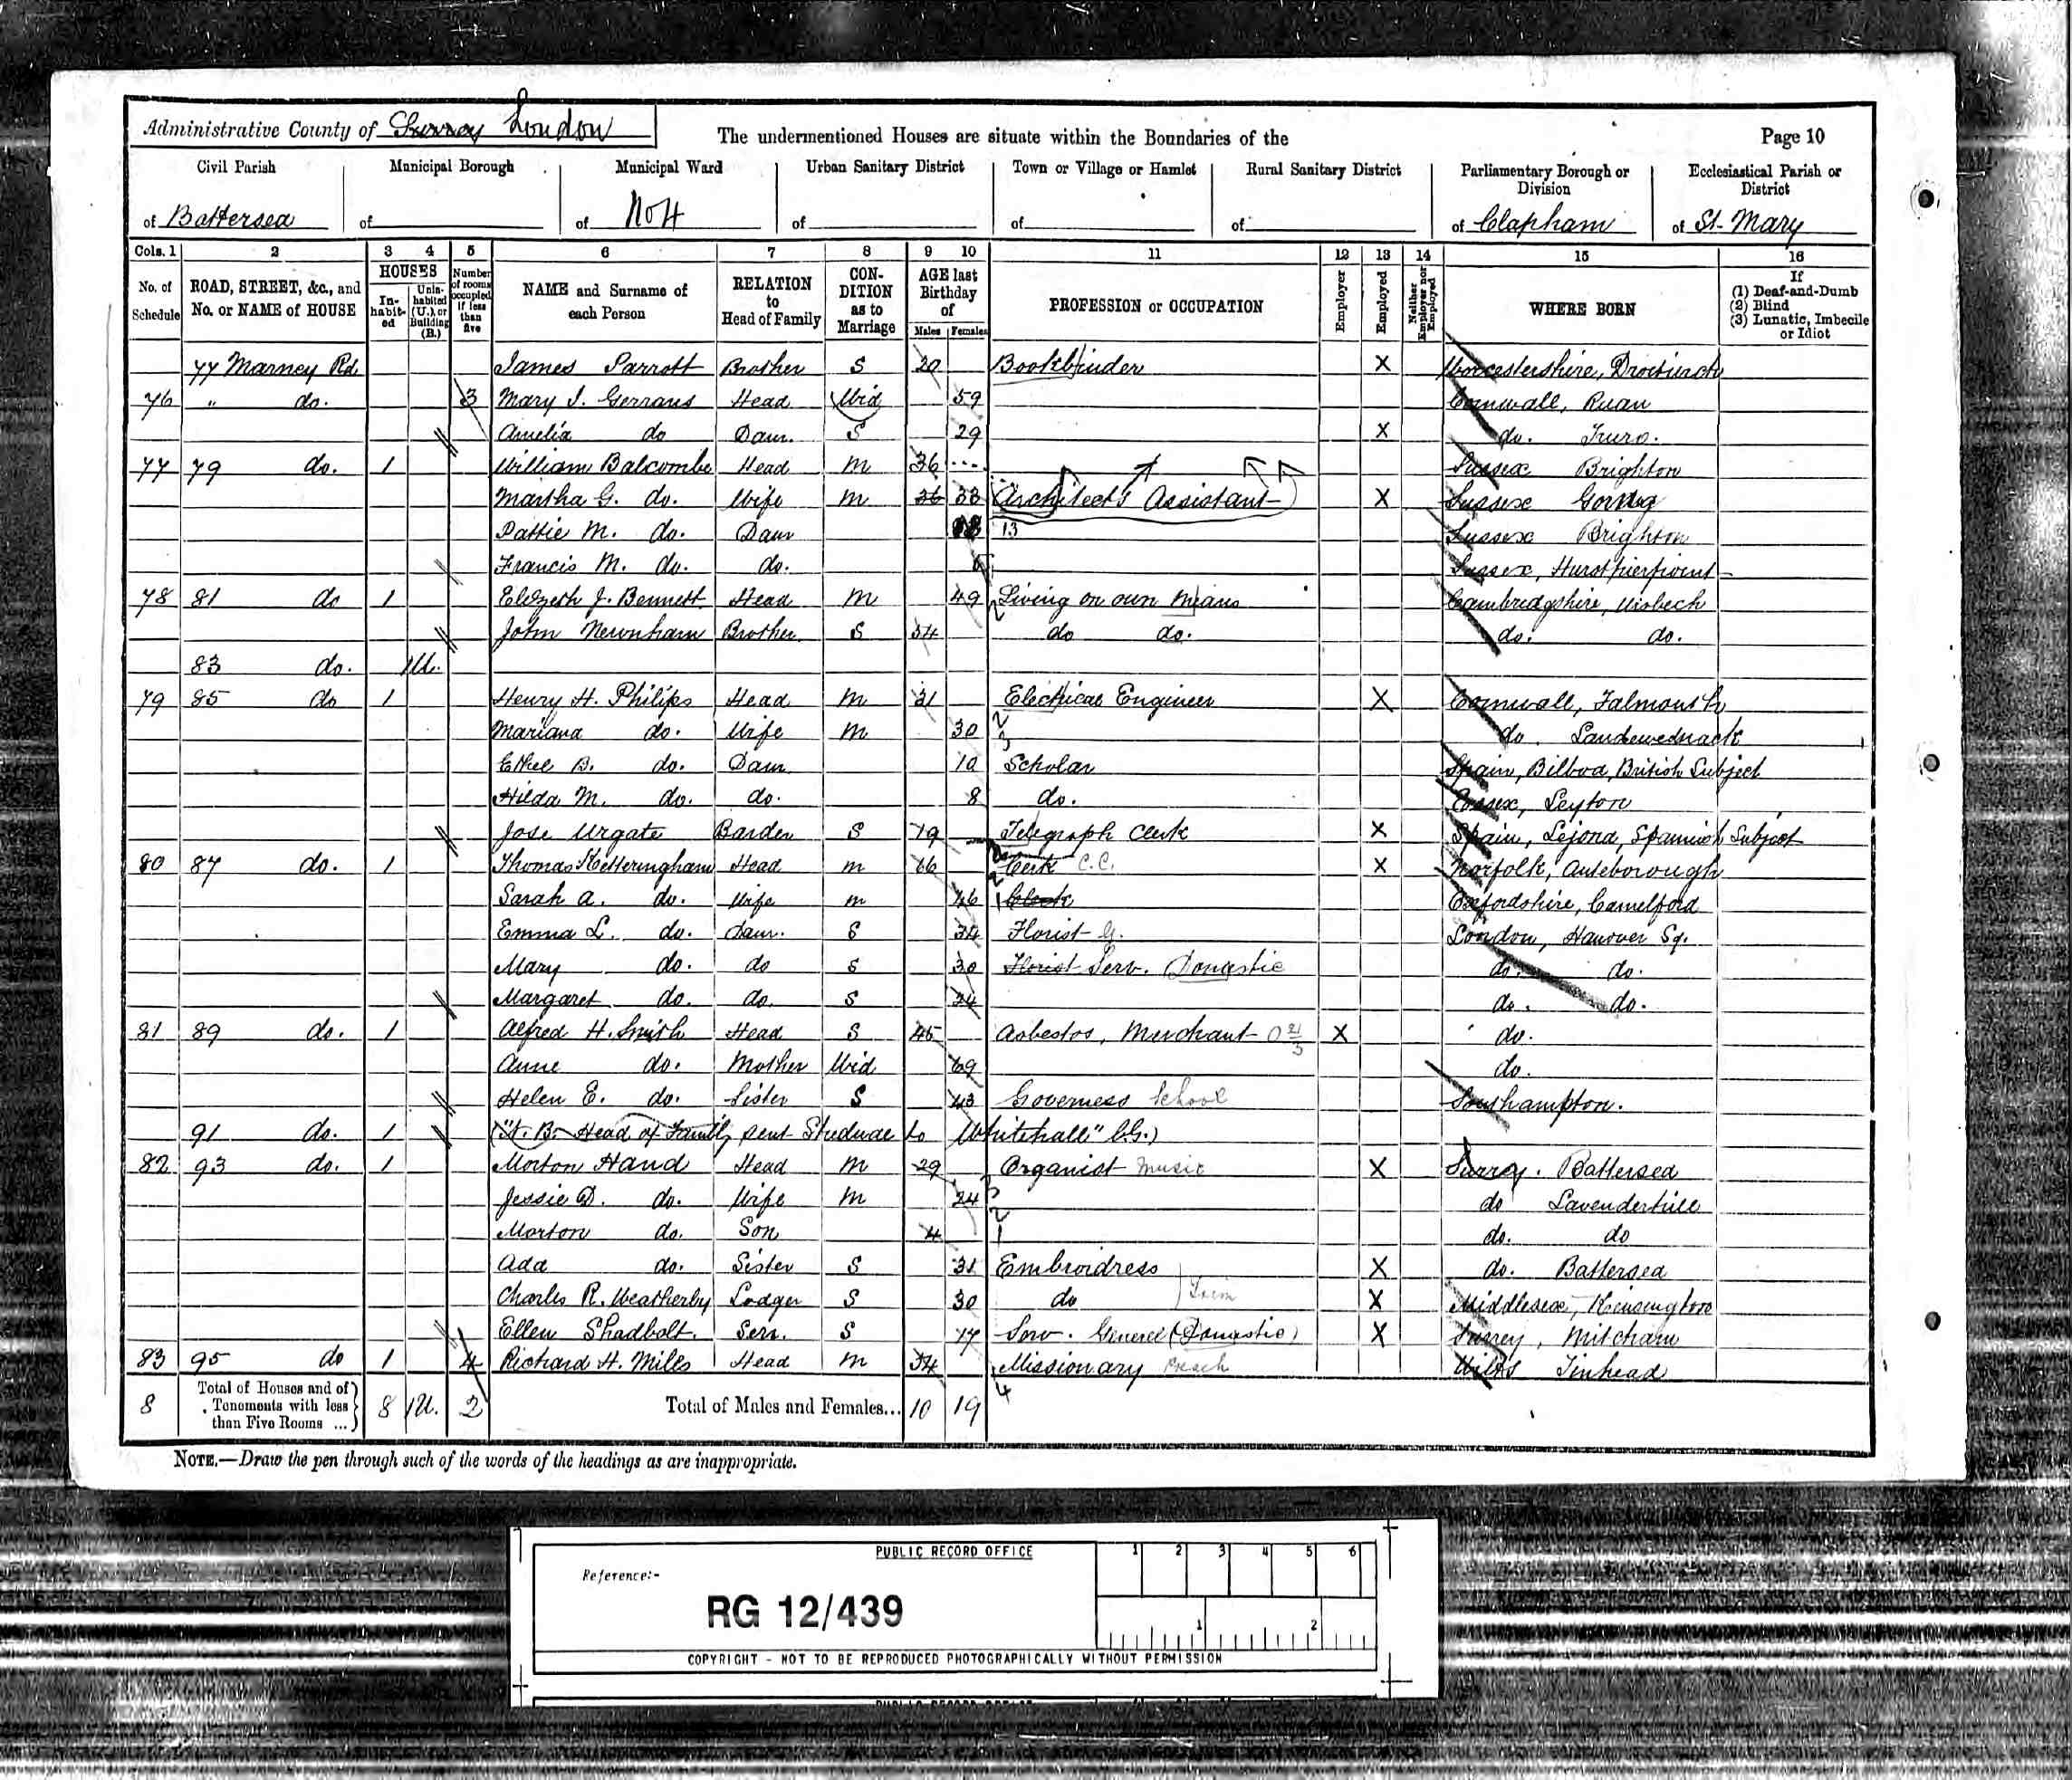 Administrative County of Surrey London
The undermentioned Houses are situate within the Boundaries of the
Page 10
Civil Parish Municipal Borough Municipal Ward Urban Sanitary District Town or Village or Hamlet Rural Sanitary District Parliamentary Borough or Division Ecclesiastical Parish or District
of Battersea of of No 4 of of of of Clapham of St. Mary
Cols. 1 2 3 4 5 6 7 8 9 10 11 12 13 14 15 16
No. of Schedule ROAD, STREET, &c., and No. or NAME of HOUSE HOUSES In-habit-ed Unin-habited (U.), or Building (B.) Number of rooms occupied if less than five NAME and Surname of each Person RELATION to Head of Family CON-DITION as to Marriage AGE last Birthday of Males Females PROFESSION or OCCUPATION Employer Employed Neither Employer nor Employed WHERE BORN If (1) Deaf-and-Dumb (2) Blind (3) Lunatic, Imbecile or Idiot
77 Marney Rd James Parrott Brother S 20 Bookbinder X Worcestershire, Droitwich
76 " do. 3 Mary J. Gerrans Head Wid 59 Cornwall, Ruan
Amelia do Daur. S 29 X do. Truro.
77 79 do. 1 William Balcombe Head M 36 Sussex Brighton
Martha G. do. Wife M 36 33 Architect's Assistant X Sussex
Pattie M. do. Daur 13 Sussex Brighton
Francis M. do. do. Sussex, Hurstpierpoint
78 81 do 1 Elizth J. Bennett Head M 49 Living on own Means Cambridgshire, Wisbech
John Newnham Brother S 34 do do. do. do.
83 do. 1U.
79 85 do 1 Henry H. Philips Head M 31 Electrical Engineer X Cornwall, Falmouth
Mariana do. Wife M 30 do. Landewednack
Ethel B. do. Daur 10 Scholar Spain, Bilboa, British Subject
Hilda M. do. do. 8 do. Essex, Leyton
Jose Urgate Barder S 19 Telegraph Clerk X Spain, Lejona, Spanish Subject
80 87 do. 1 Thomas Ketteringham Head M 66 Clerk C.C. X Norfolk, Atteborough
Sarah A. do. Wife M Clerk Oxfordshire, Camelford
Emma L. do. Daur. S 34 Florist G. London, Hanover Sq.
Mary do. do S 30 Florist Serv. Domestic do. do.
Margaret do. do. S 24 do. do.
81 89 do. 1 Alfred H. Smith Head S 45 Asbestos, Merchant X do.
Anne do. Mother Wid 69 do.
Helen E. do. Sister S 43 Governess School Southampton.
91 do. 1 ("N. B. Head of Family sent Shedule to Whitehall" C.G.)
82 93 do. 1 Morton Hand Head M 29 Organist Music X Surrey. Battersea
Jessie D. do. Wife M 24 do Lavenderhill
Morton do. Son 4 do. do
Ada do. Sister S 31 Embroidress X do. Battersea
Charles R. Weatherby Lodger S 30 do X Middlesex, Kensington
Ellen Shadbolt. Serv. S 17 Serv. General (Domestic) X Surrey, Mitcham
83 95 do 1 4 Richard H. Mills Head M 34 Missionary Wilts Tinhead
8 Total of Houses and of Tenements with less than Five Rooms ... 8 1U. 2 Total of Males and Females... 10 19
NOTE.—Draw the pen through such of the words of the headings as are inappropriate.
PUBLIC RECORD OFFICE
1 2 3 4 5 6
Reference:-
RG 12/439
1 2
COPYRIGHT - NOT TO BE REPRODUCED PHOTOGRAPHICALLY WITHOUT PERMISSION